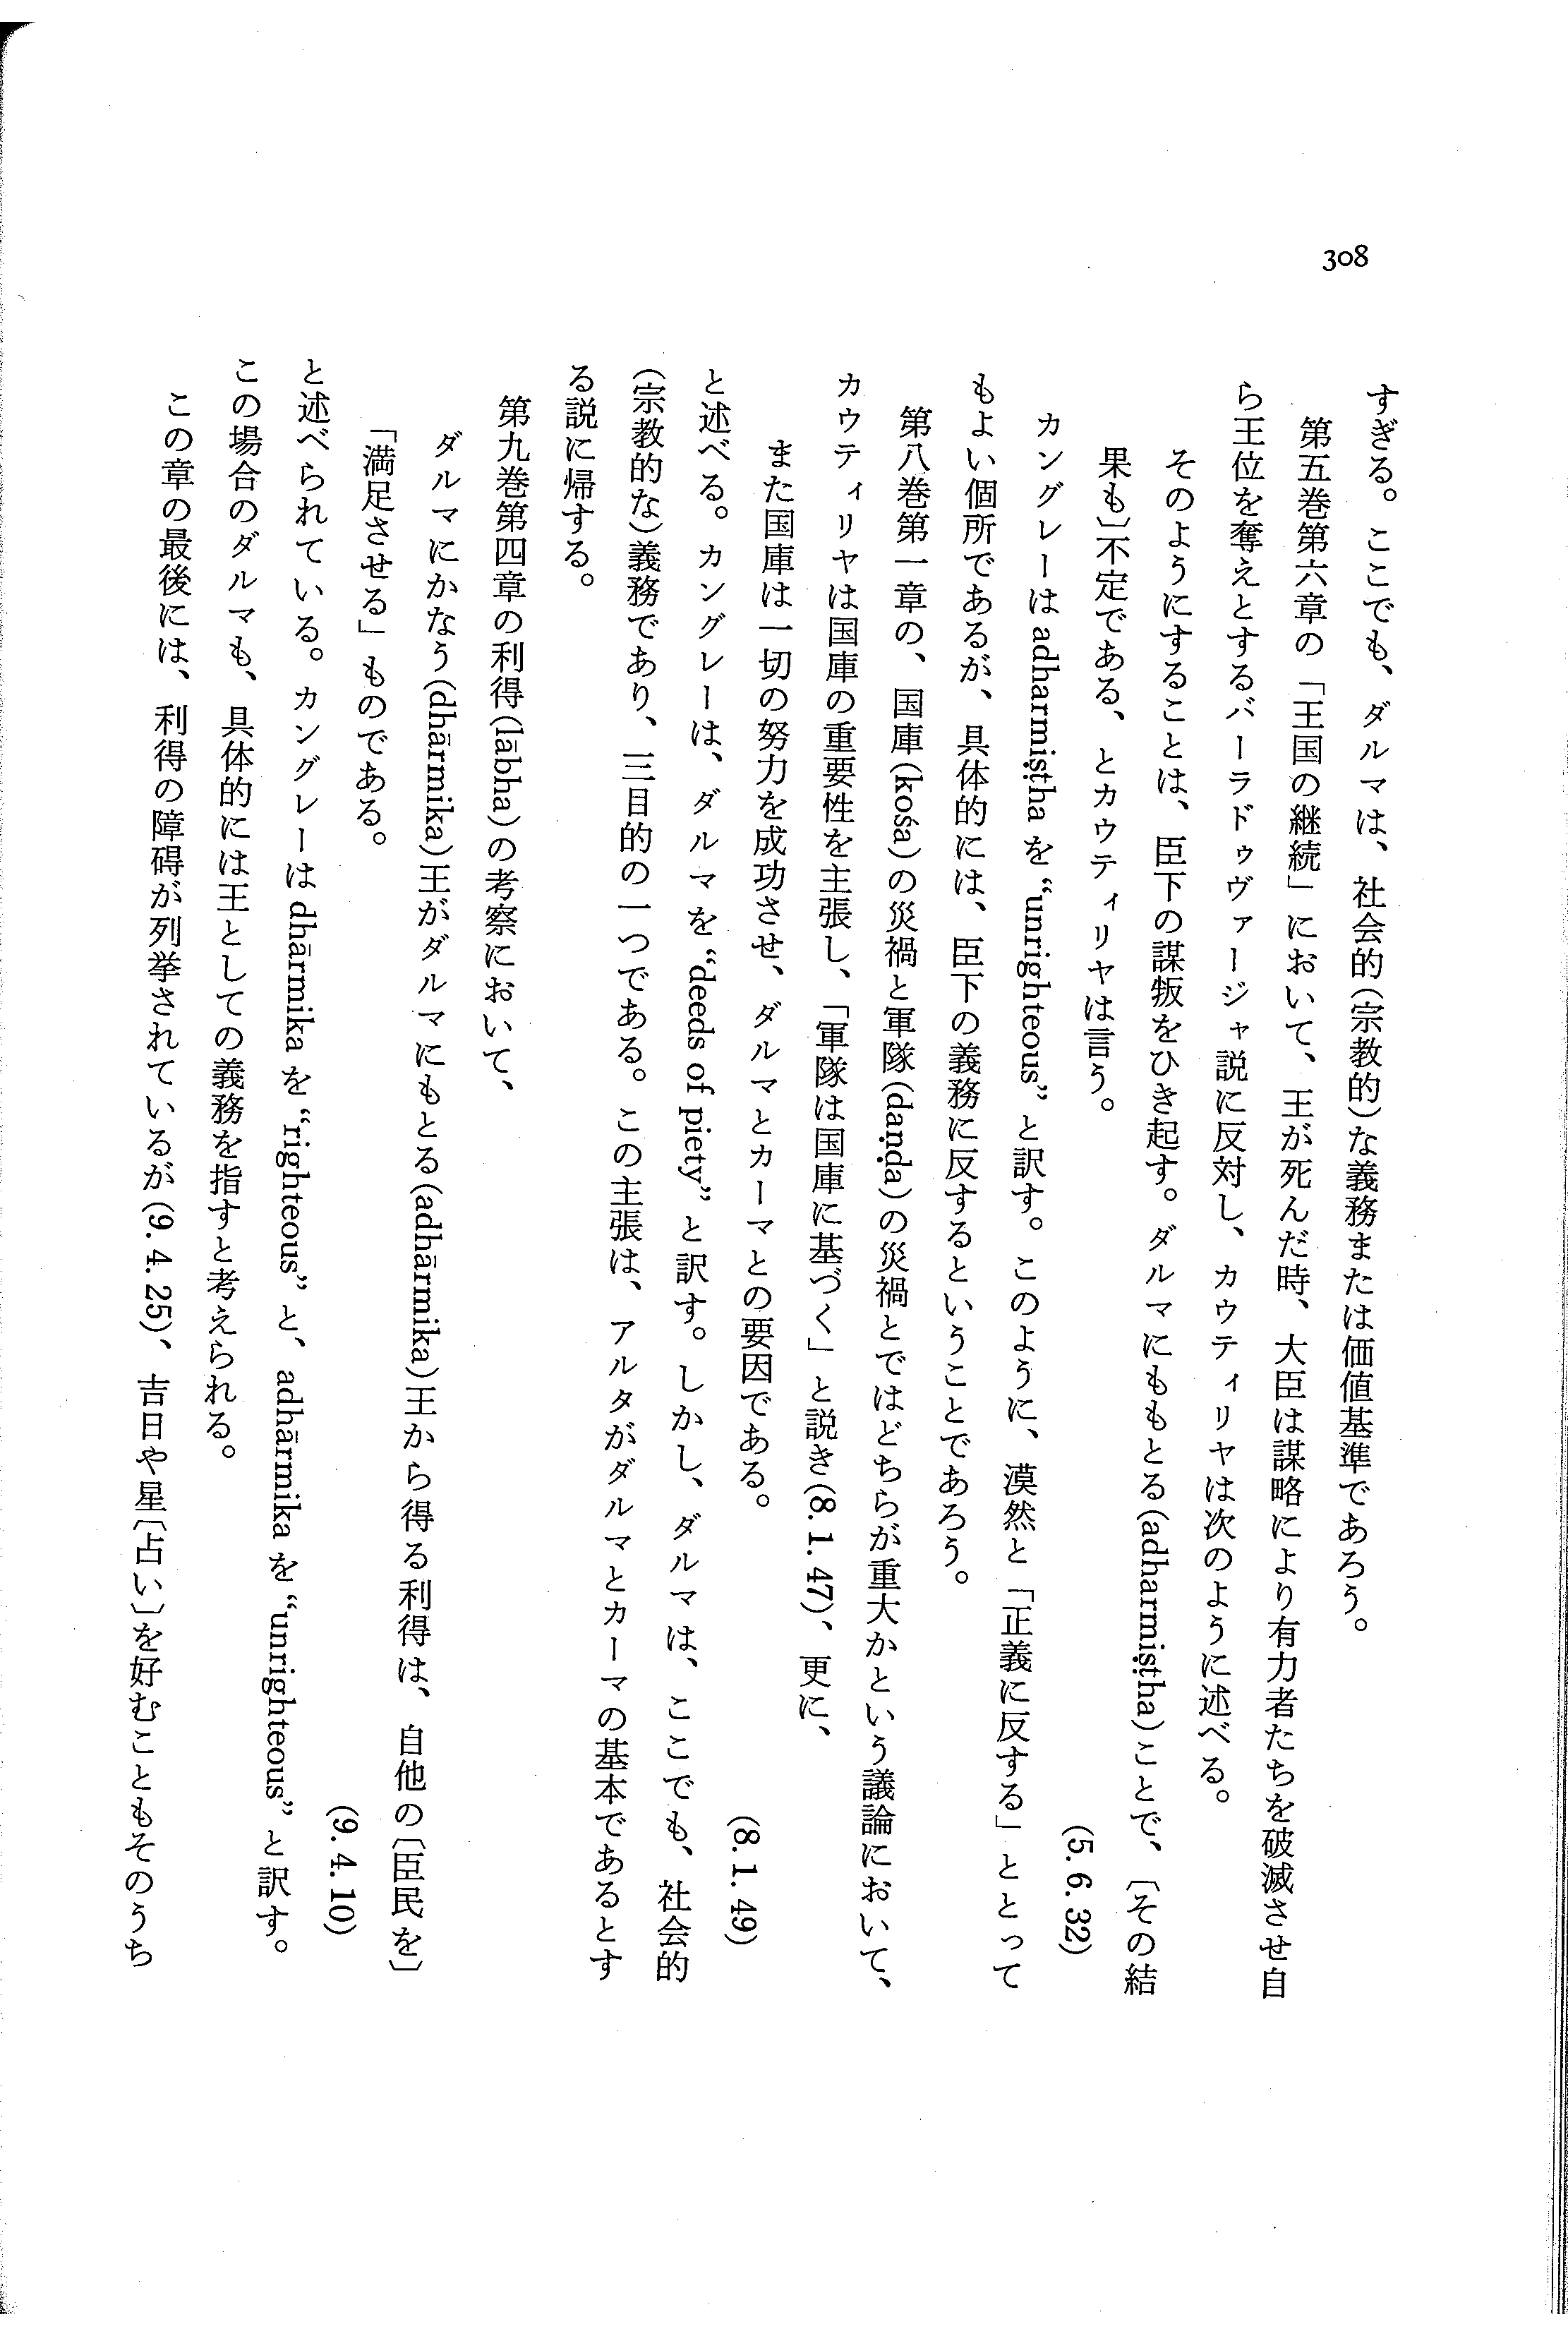 308
すぎる。ここでも、ダルマは、社会的(宗教的)な義務または価値基準であろう。
第五巻第六章の「王国の継続」において、王が死んだ時、大臣は謀略により有力者たちを破滅させ自
ら王位を奪えとするバーラドゥヴァージャ説に反対し、カウティリヤは次のように述べる。
そのようにすることは、臣下の謀叛をひき起す。ダルマにももとる(adharmiṣṭha)ことで、〔その結
果も〕不定である、とカウティリヤは言う。
(5. 6. 32)
カングレーは adharmiṣṭha を “unrighteous” と訳す。このように、漠然と「正義に反する」ととって
もよい個所であるが、具体的には、臣下の義務に反するということであろう。
第八巻第一章の、国庫(kośa)の災禍と軍隊(daṇḍa)の災禍とではどちらが重大かという議論において、
カウティリヤは国庫の重要性を主張し、「軍隊は国庫に基づく」と説き(8. 1. 47)、更に、
また国庫は一切の努力を成功させ、ダルマとカーマとの要因である。
(8. 1. 49)
と述べる。カングレーは、ダルマを “deeds of piety” と訳す。しかし、ダルマは、ここでも、社会的
(宗教的な)義務であり、三目的の一つである。この主張は、アルタがダルマとカーマの基本であるとす
る説に帰する。
第九巻第四章の利得(lābha)の考察において、
ダルマにかなう(dhārmika)王がダルマにもとる(adhārmika)王から得る利得は、自他の〔臣民を〕
「満足させる」ものである。
(9. 4. 10)
と述べられている。カングレーは dhārmika を “righteous” と、adhārmika を “unrighteous” と訳す。
この場合のダルマも、具体的には王としての義務を指すと考えられる。
この章の最後には、利得の障碍が列挙されているが(9. 4. 25)、吉日や星〔占い〕を好むこともそのうち